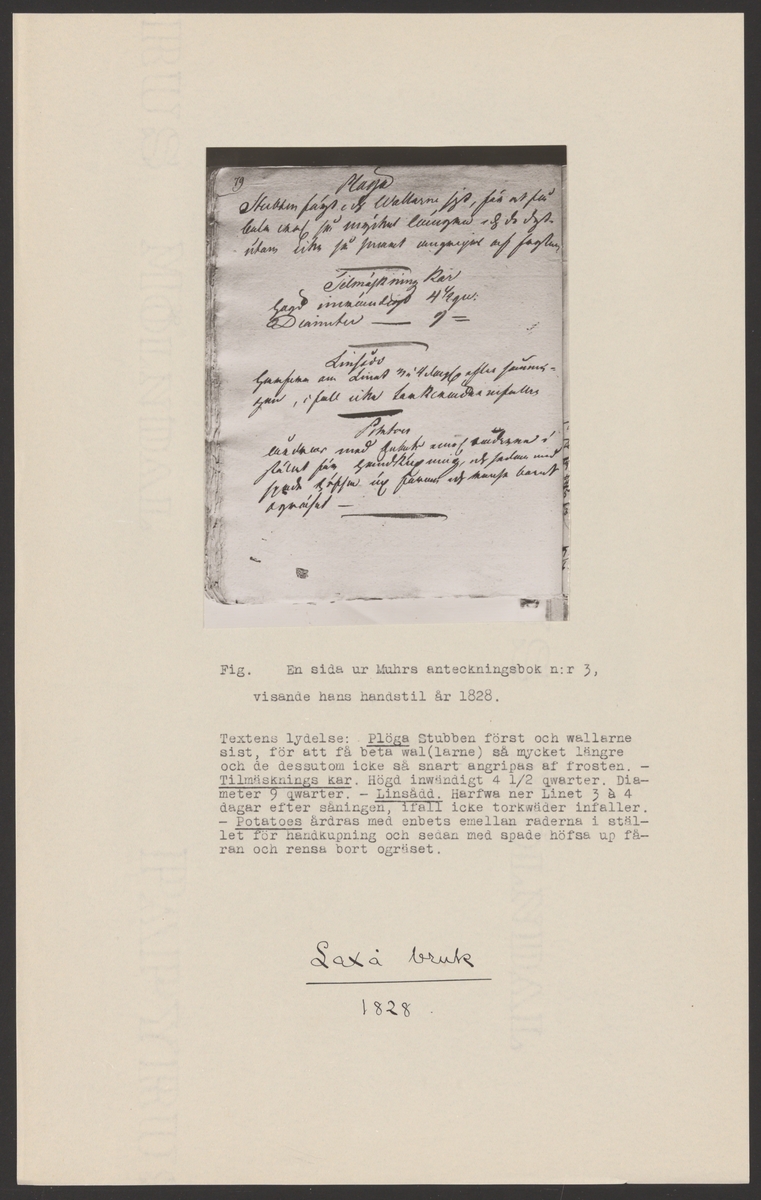 79
Plöga
Stubben först och Wallarne sist, för at få
beta wal så mycket längre och de dess-
utom icke så snart angripas af frosten
Tilmäsknings Kar
Högd inwändigt 4 1/2 qw:
Diameter — 9 =
Linsådd
Harfwa ner Linet 3 à 4 dagar efter sånin-
gen, ifall icke torkwäder infaller
Potatoes
årdras med enbets emellan raderna i
stället för handkupning, och sedan med
spade höfsa up fåran och rensa bort
ogräset —
Fig. En sida ur Muhrs anteckningsbok n:r 3,
visande hans handstil år 1828.
Textens lydelse: Plöga Stubben först och wallarne
sist, för att få beta wal(larne) så mycket längre
och de dessutom icke så snart angripas af frosten. —
Tilmäsknings kar. Högd inwändigt 4 1/2 qwarter. Dia-
meter 9 qwarter. — Linsådd. Harfwa ner Linet 3 à 4
dagar efter såningen, ifall icke torkwäder infaller.
— Potatoes årdras med enbets emellan raderna i stäl-
let för handkupning och sedan med spade höfsa up få-
ran och rensa bort ogräset.
Laxå bruk
1828.